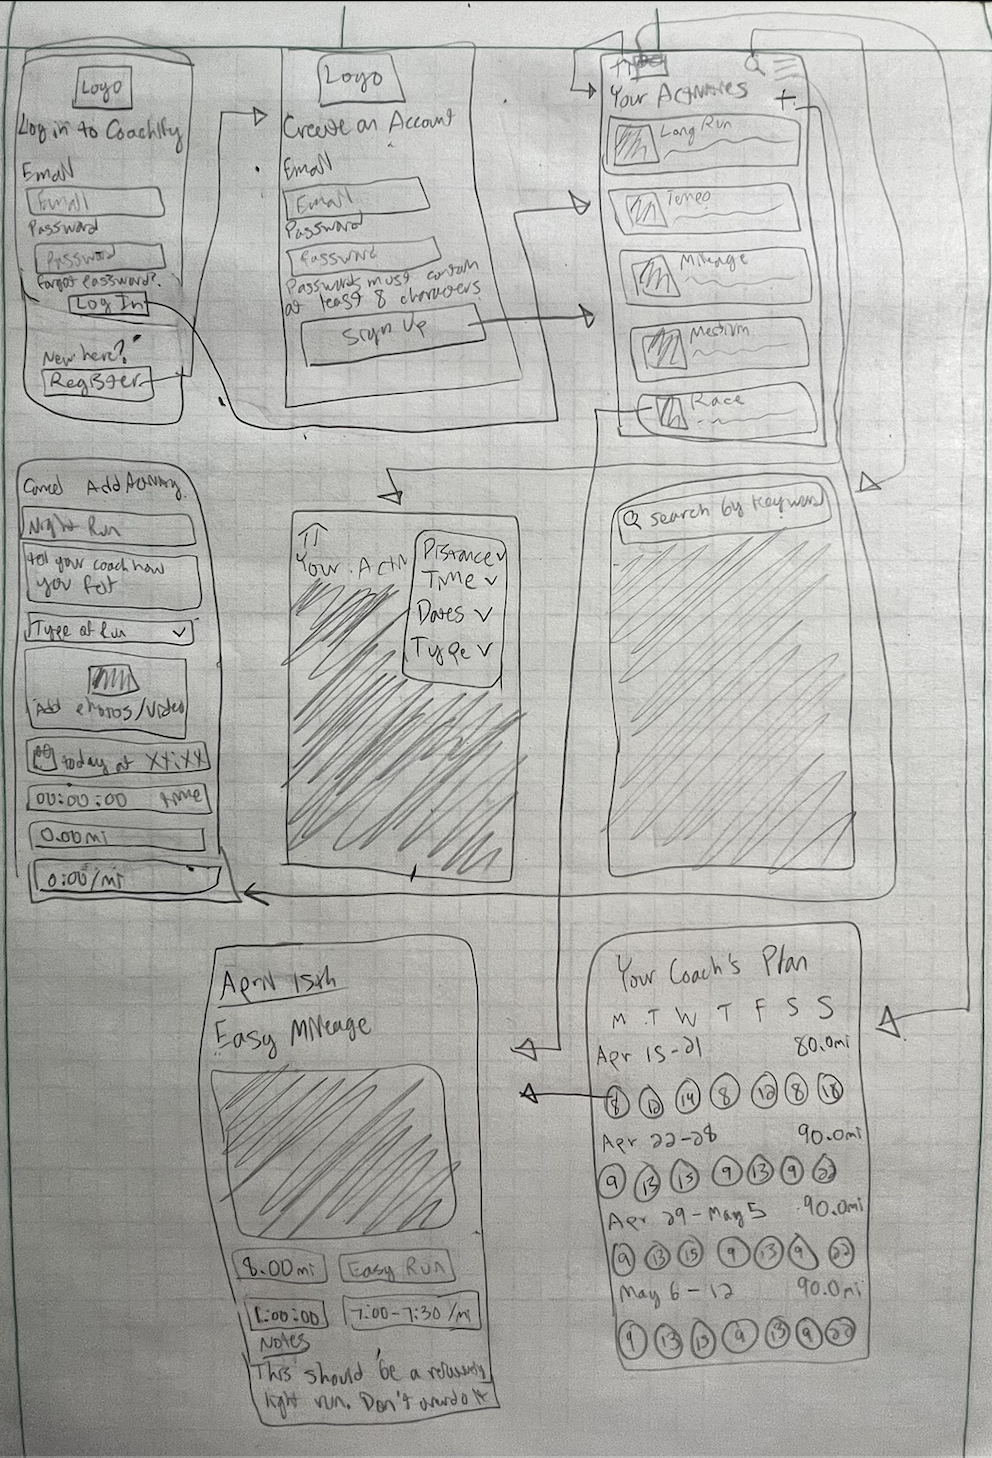 Logo
Log in to Coachify
Email
Email
Password
Password
forgot password?
Log In
New here?
Register
Logo
Create an Account
Email
Email
Password
Password
Passwords must contain
at least 8 characters
Sign Up
Your Activities
+
Long Run
Tempo
Mileage
Medium
Race
Cancel Add Activity
Night Run
tell your coach how
you felt
Type of Run
Add photos/video
today at XX:XX
00:00:00 time
0.00mi
0:00/mi
Your Acti
Distance
Time
Dates
Type
search by keyword
April 15th
Easy Mileage
8.00mi Easy Run
1:00:00 7:00-7:30/mi
Notes
This should be a relatively
light run. Don't overdo it
Your Coach's Plan
M T W T F S S
Apr 15-21 80.0mi
8 12 14 8 12 8 18
Apr 22-28 90.0mi
9 13 15 9 13 9 22
Apr 29-May 5 90.0mi
9 13 15 9 13 9 22
May 6-12 90.0mi
9 13 15 9 13 9 22